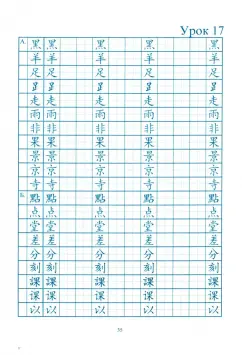 Урок 17
А. 黑 黑 黑 黑 黑
羊 羊 羊 羊 羊
足 足 足 足 足
走 走 走 走 走
雨 雨 雨 雨 雨
非 非 非 非 非
果 果 果 果 果
景 景 景 景 景
京 京 京 京 京
寺 寺 寺 寺 寺
Б. 點 點 點 點 點
点 点 点 点 点
堂 堂 堂 堂 堂
差 差 差 差 差
分 分 分 分 分
刻 刻 刻 刻 刻
課 課 課 課 課
课 课 课 课 课
以 以 以 以 以